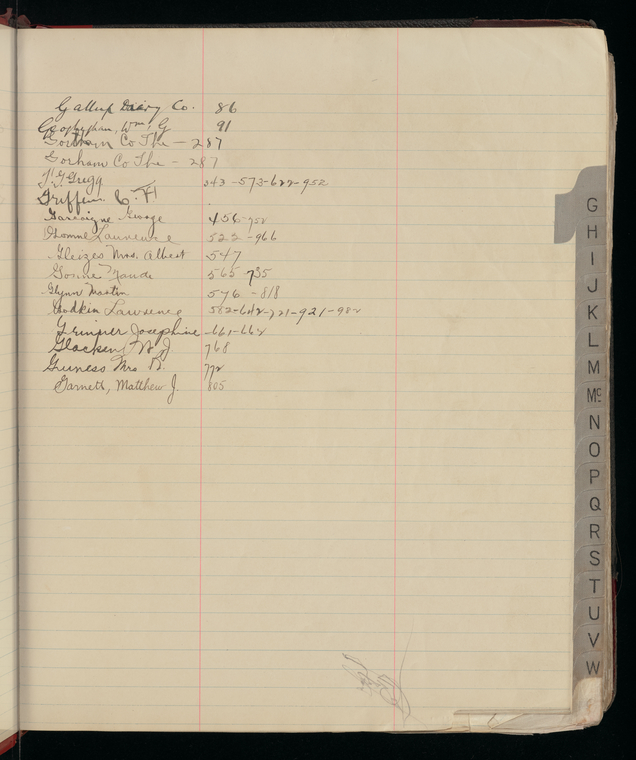 Gallup Dairy Co. 86
Wm. G 91
Gorham Co The - 287
Gorham Co The - 287
J. J. Gregg 343-573-622-952
Griffen C. H
Gascoigne George 456-752
Gomme Laurence 522-966
Gleizes Mrs. Albert 547
Gonne Maude 565-735
Glynn Martin 576-818
Godkin Lawrence 582-642-721-921-982
Grimmer Josephine 661-662
Glackens W. J. 768
Guiness Mrs. B. 772
Garnett, Matthew J. 805
G
H
I
J
K
L
M
Mc
N
O
P
Q
R
S
T
U
V
W